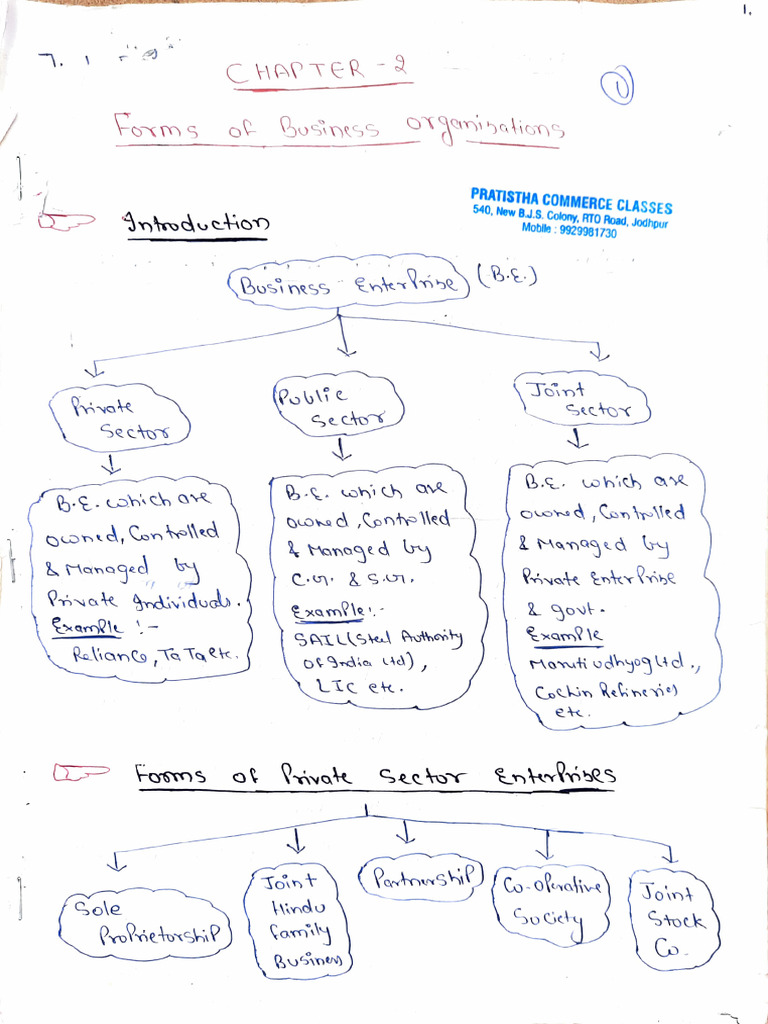 1.
7. 1
CHAPTER - 2
1
Forms of Business organisations
PRATISTHA COMMERCE CLASSES
540, New B.J.S. Colony, RTO Road, Jodhpur
Mobile : 9929981730
Introduction
Business Enterprise (B.E.)
Private
Sector
Public
Sector
Joint
Sector
B.E. which are
owned, Controlled
& Managed by
Private Individuals.
Example :-
Reliance, TaTa etc.
B.E. which are
owned, Controlled
& Managed by
C.G. & S.G.
Example :-
SAIL (Steel Authority
of India Ltd),
LIC etc.
B.E. which are
owned, Controlled
& Managed by
Private Enterprise
& govt.
Example
Maruti udhyog Ltd.,
Cochin Refineries
etc.
Forms of Private Sector Enterprises
Sole
Proprietorship
Joint
Hindu
family
Business
Partnership
Co-operative
Society
Joint
Stock
Co.